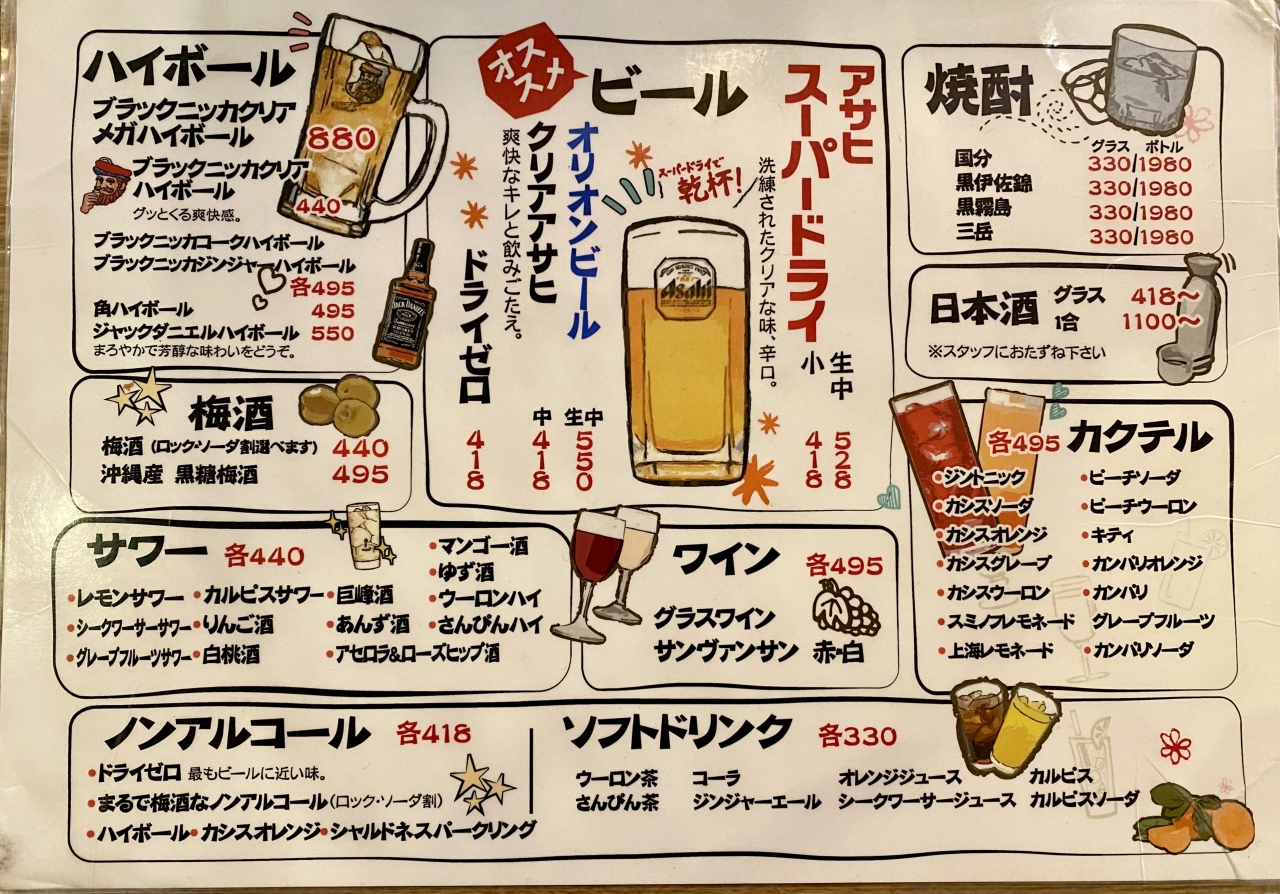 ハイボール
ブラックニッカクリア
メガハイボール
880
ブラックニッカクリア
ハイボール
440
グッとくる爽快感。
ブラックニッカコークハイボール
ブラックニッカジンジャーハイボール
各495
角ハイボール 495
ジャックダニエルハイボール 550
まろやかで芳醇な味わいをどうぞ。
JACK DANIEL'S
オススメ
ビール
アサヒ
スーパードライ
洗練されたクリアな味、辛口。
生中 528
小 418
スーパードライで
乾杯!
Asahi
オリオンビール
生中 550
クリアアサヒ
爽快なキレと飲みごたえ。
中 418
ドライゼロ
418
焼酎
グラス ボトル
国分 330/1980
黒伊佐錦 330/1980
黒霧島 330/1980
三岳 330/1980
日本酒
グラス 418〜
1合 1100〜
※スタッフにおたずね下さい
梅酒
梅酒(ロック・ソーダ割選べます) 440
沖縄産 黒糖梅酒 495
カクテル
各495
•ジントニック
•カシスソーダ
•カシスオレンジ
•カシスグレープ
•カシスウーロン
•スミノフレモネード
•上海レモネード
•ピーチソーダ
•ピーチウーロン
•キティ
•カンパリオレンジ
•カンパリ
グレープフルーツ
•カンパリソーダ
サワー 各440
•レモンサワー
•シークワーサーサワー
•グレープフルーツサワー
•カルピスサワー
•りんご酒
•白桃酒
•巨峰酒
•あんず酒
•アセロラ&ローズヒップ酒
•マンゴー酒
•ゆず酒
•ウーロンハイ
•さんぴんハイ
ワイン 各495
グラスワイン
サンヴァンサン 赤・白
ノンアルコール 各418
•ドライゼロ 最もビールに近い味。
•まるで梅酒なノンアルコール(ロック・ソーダ割)
•ハイボール•カシスオレンジ•シャルドネスパークリング
ソフトドリンク 各330
ウーロン茶 コーラ オレンジジュース カルピス
さんぴん茶 ジンジャーエール シークワーサージュース カルピスソーダ